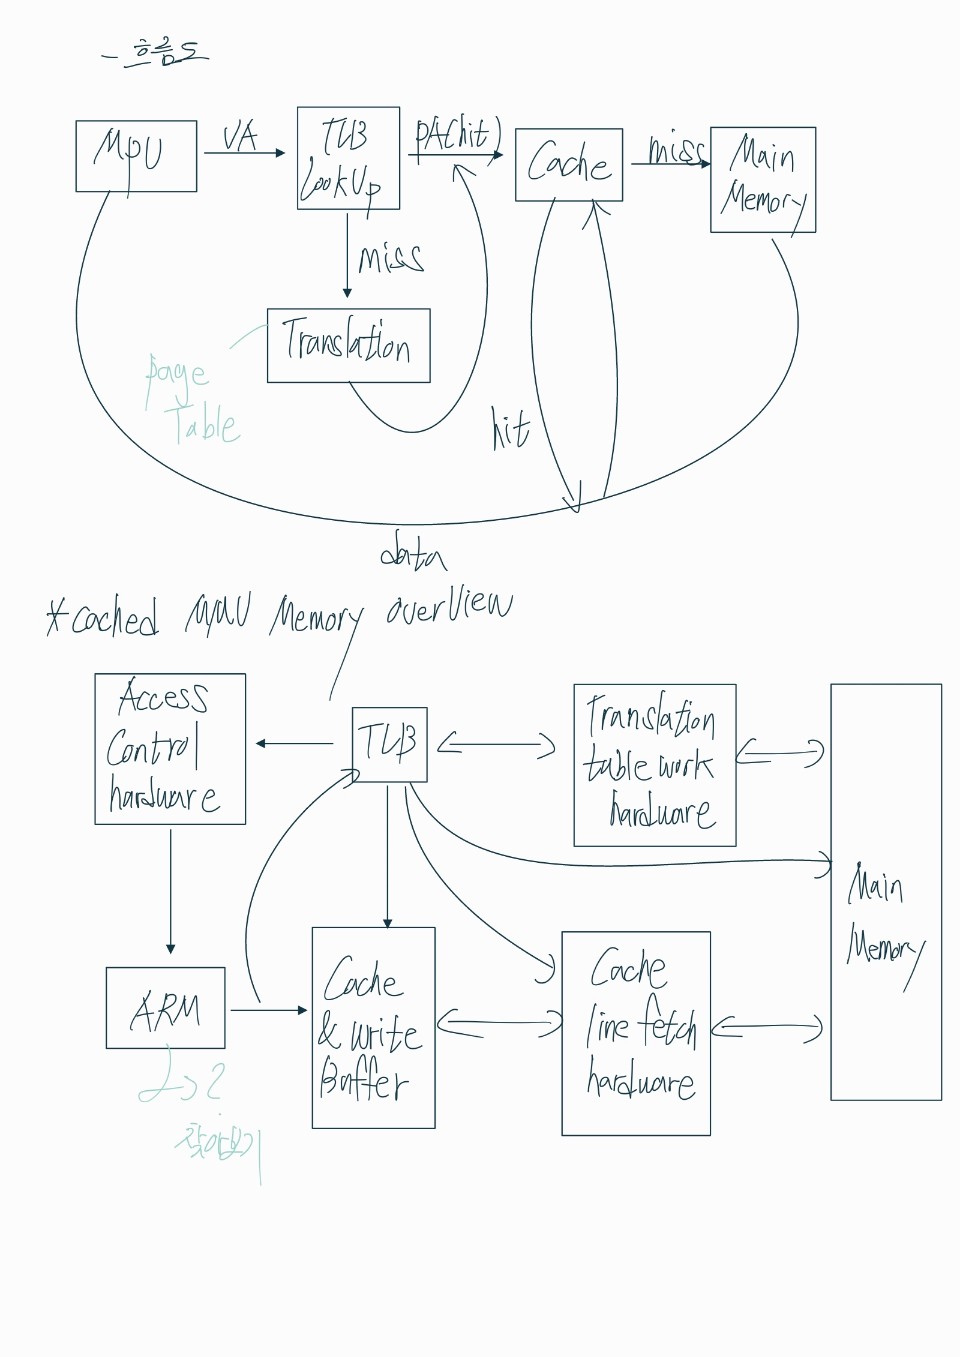 - 흐름도
MPU
VA
TLB
LookUp
PA(hit)
Cache
miss
Main
Memory
miss
Translation
page
Table
hit
data
*cached MMU Memory overView
Access
Control
hardware
TLB
Translation
table work
hardware
Main
Memory
ARM
Cache
& write
Buffer
Cache
line fetch
hardware
찾아보기